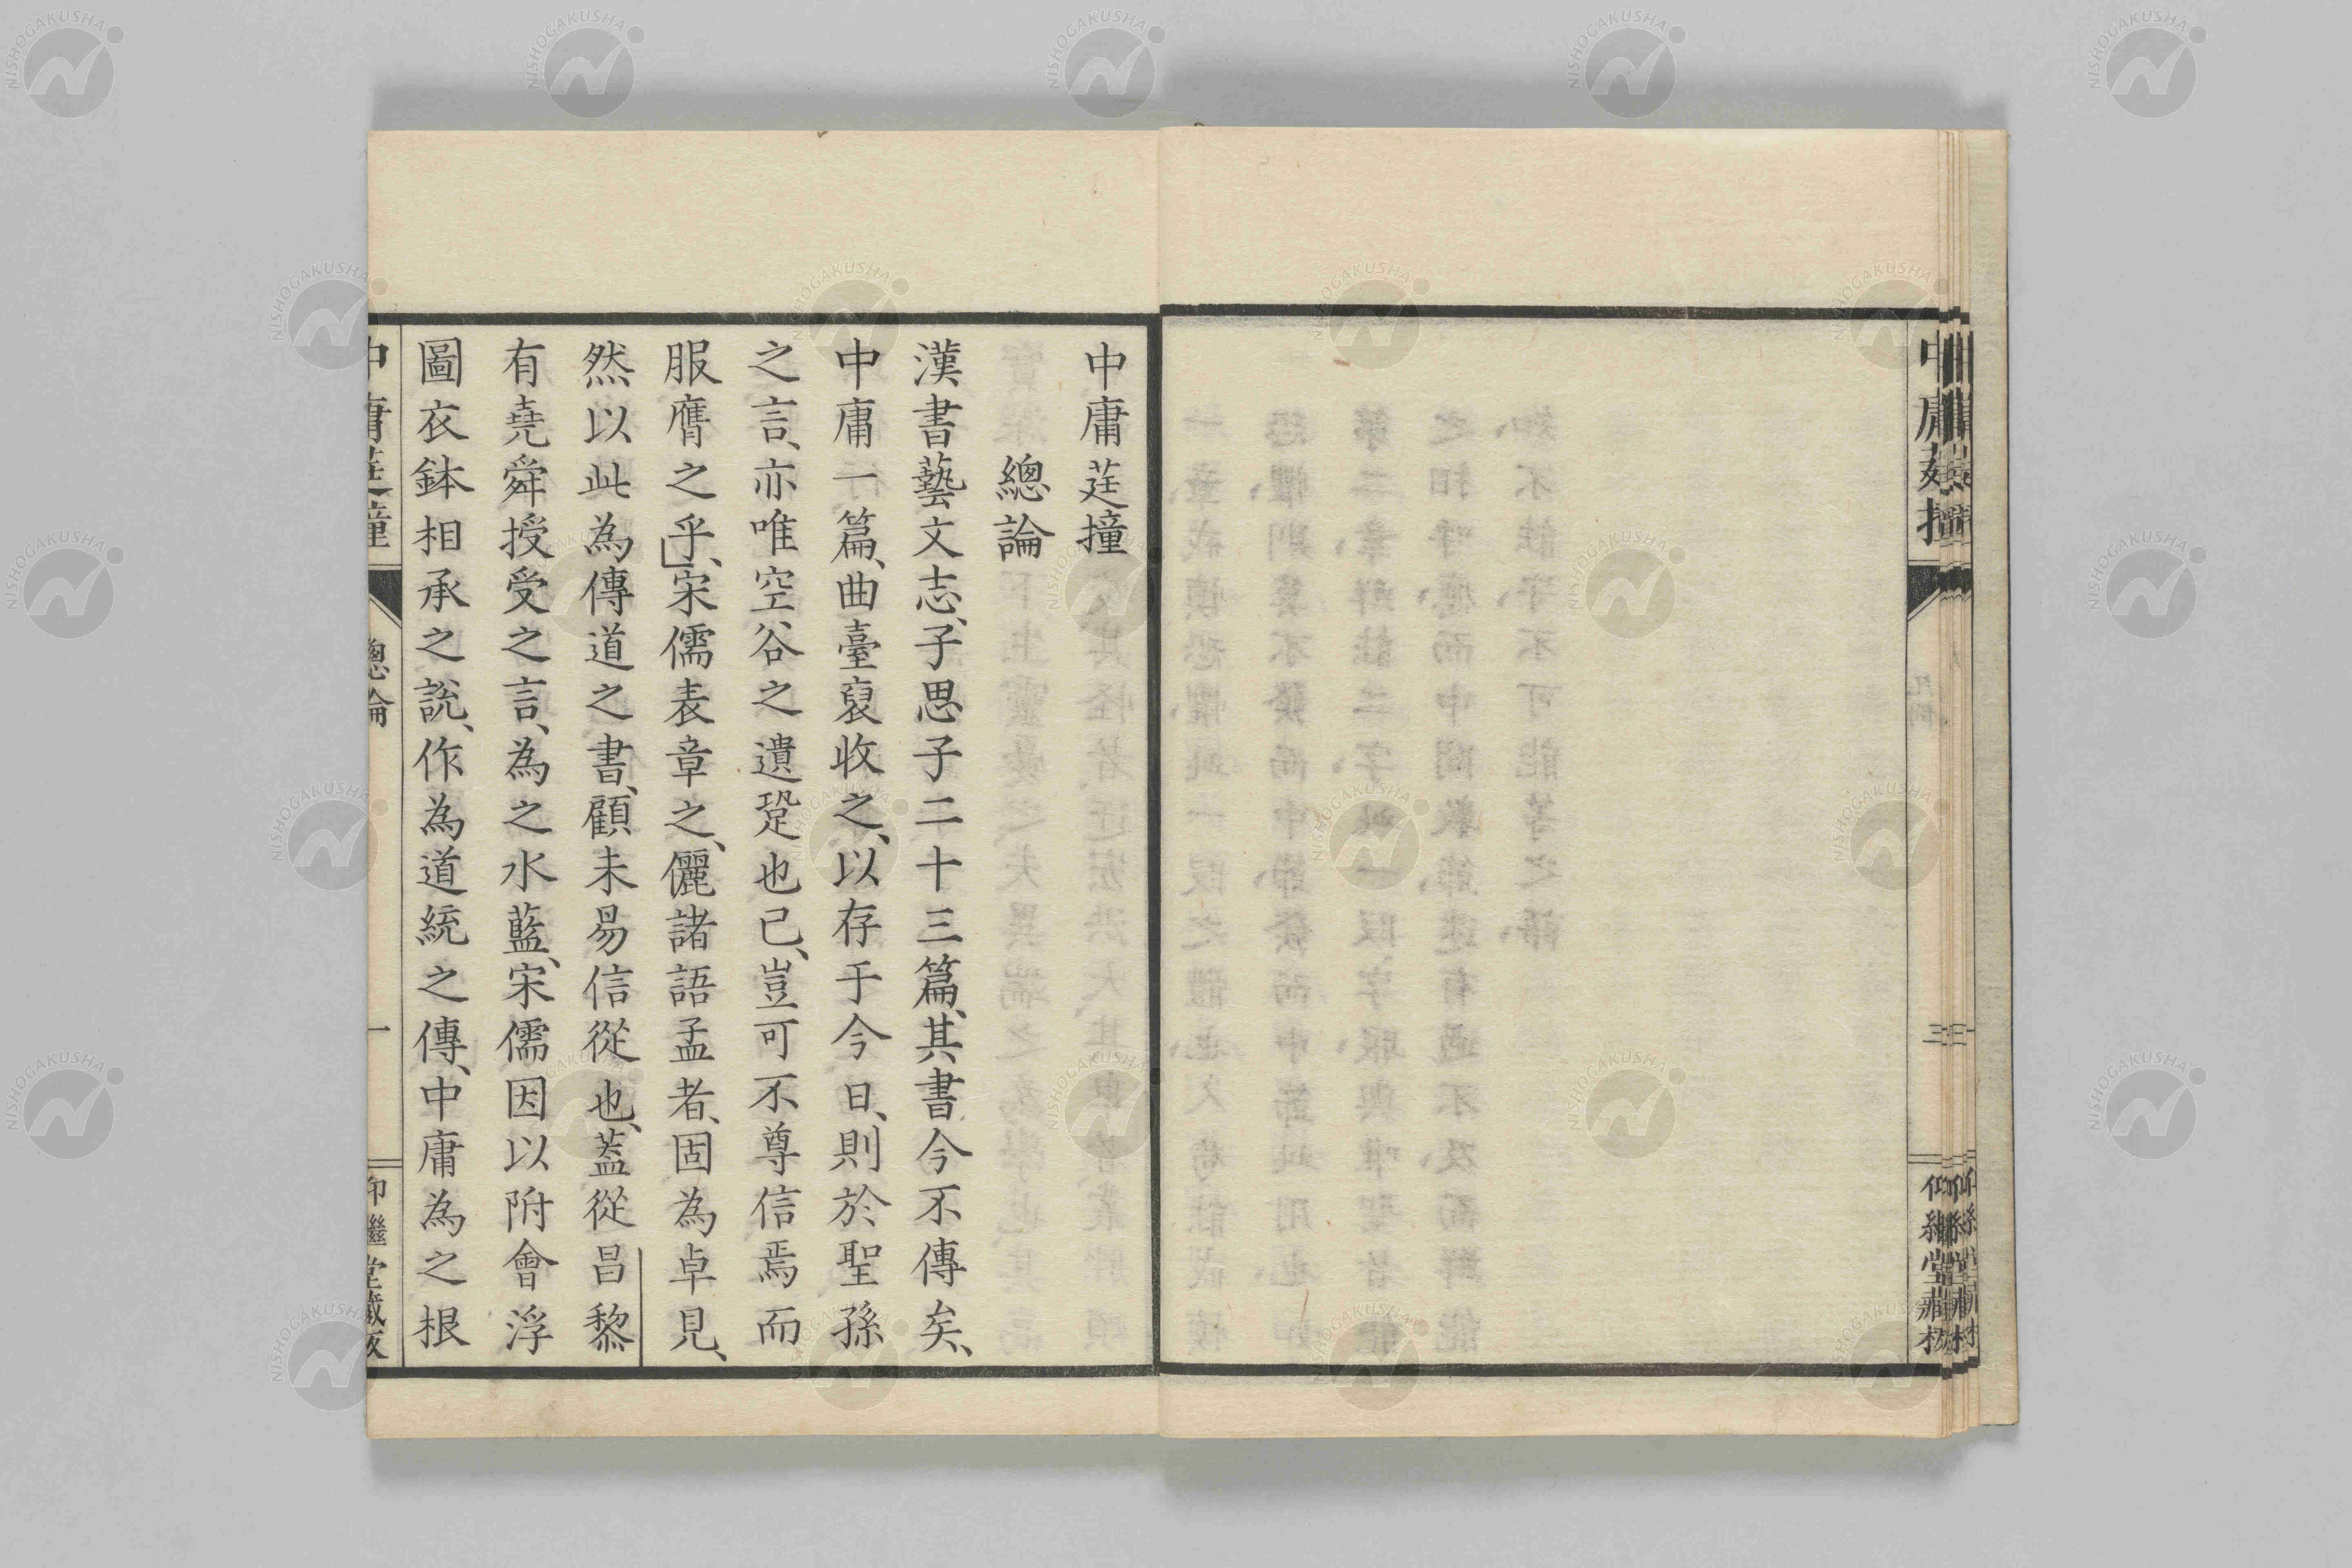 中庸莛撞
總論
漢書藝文志、子思子二十三篇、其書今不傳矣、
中庸一篇、曲臺裒收之、以存于今日、則於聖孫
之言、亦唯空谷之遺跫也已、豈可不尊信焉而
服膺之乎、宋儒表章之、儷諸語孟者、固為卓見、
然以此為傳道之書、顧未易信從也、蓋從昌黎
有堯舜授受之言、為之水藍、宋儒因以附會浮
圖衣鉢相承之說、作為道統之傳、中庸為之根
中庸莛撞
總論
一
仰繼堂藏板
三
NISHOGAKUSHA